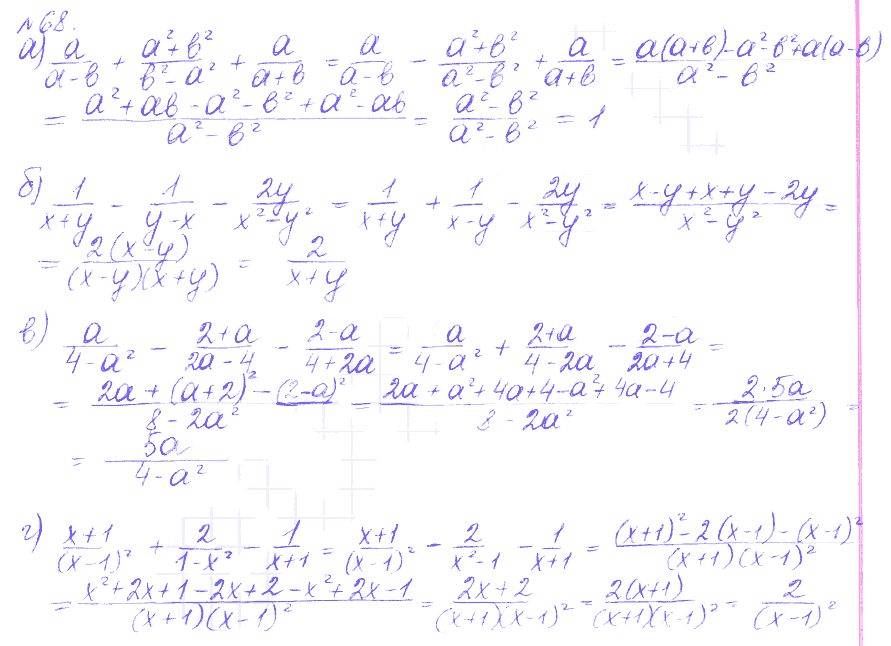 №68.
а) a/(a-в) + (a²+в²)/(в²-a²) + a/(a+в) = a/(a-в) - (a²+в²)/(a²-в²) + a/(a+в) = (a(a+в)-a²-в²+a(a-в))/(a²-в²)
= (a²+aв-a²-в²+a²-aв)/(a²-в²) = (a²-в²)/(a²-в²) = 1
б) 1/(x+y) - 1/(y-x) - 2y/(x²-y²) = 1/(x+y) + 1/(x-y) - 2y/(x²-y²) = (x-y+x+y-2y)/(x²-y²) =
= 2(x-y)/((x-y)(x+y)) = 2/(x+y)
в) a/(4-a²) - (2+a)/(2a-4) - (2-a)/(4+2a) = a/(4-a²) + (2+a)/(4-2a) - (2-a)/(2a+4) =
= (2a+(a+2)²-(2-a)²)/(8-2a²) = (2a+a²+4a+4-a²+4a-4)/(8-2a²) = 2·5a/(2(4-a²)) =
= 5a/(4-a²)
г) (x+1)/(x-1)² + 2/(1-x²) - 1/(x+1) = (x+1)/(x-1)² - 2/(x²-1) - 1/(x+1) = ((x+1)²-2(x-1)-(x-1)²)/((x+1)(x-1)²)
= (x²+2x+1-2x+2-x²+2x-1)/((x+1)(x-1)²) = (2x+2)/((x+1)(x-1)²) = 2(x+1)/((x+1)(x-1)²) = 2/(x-1)²